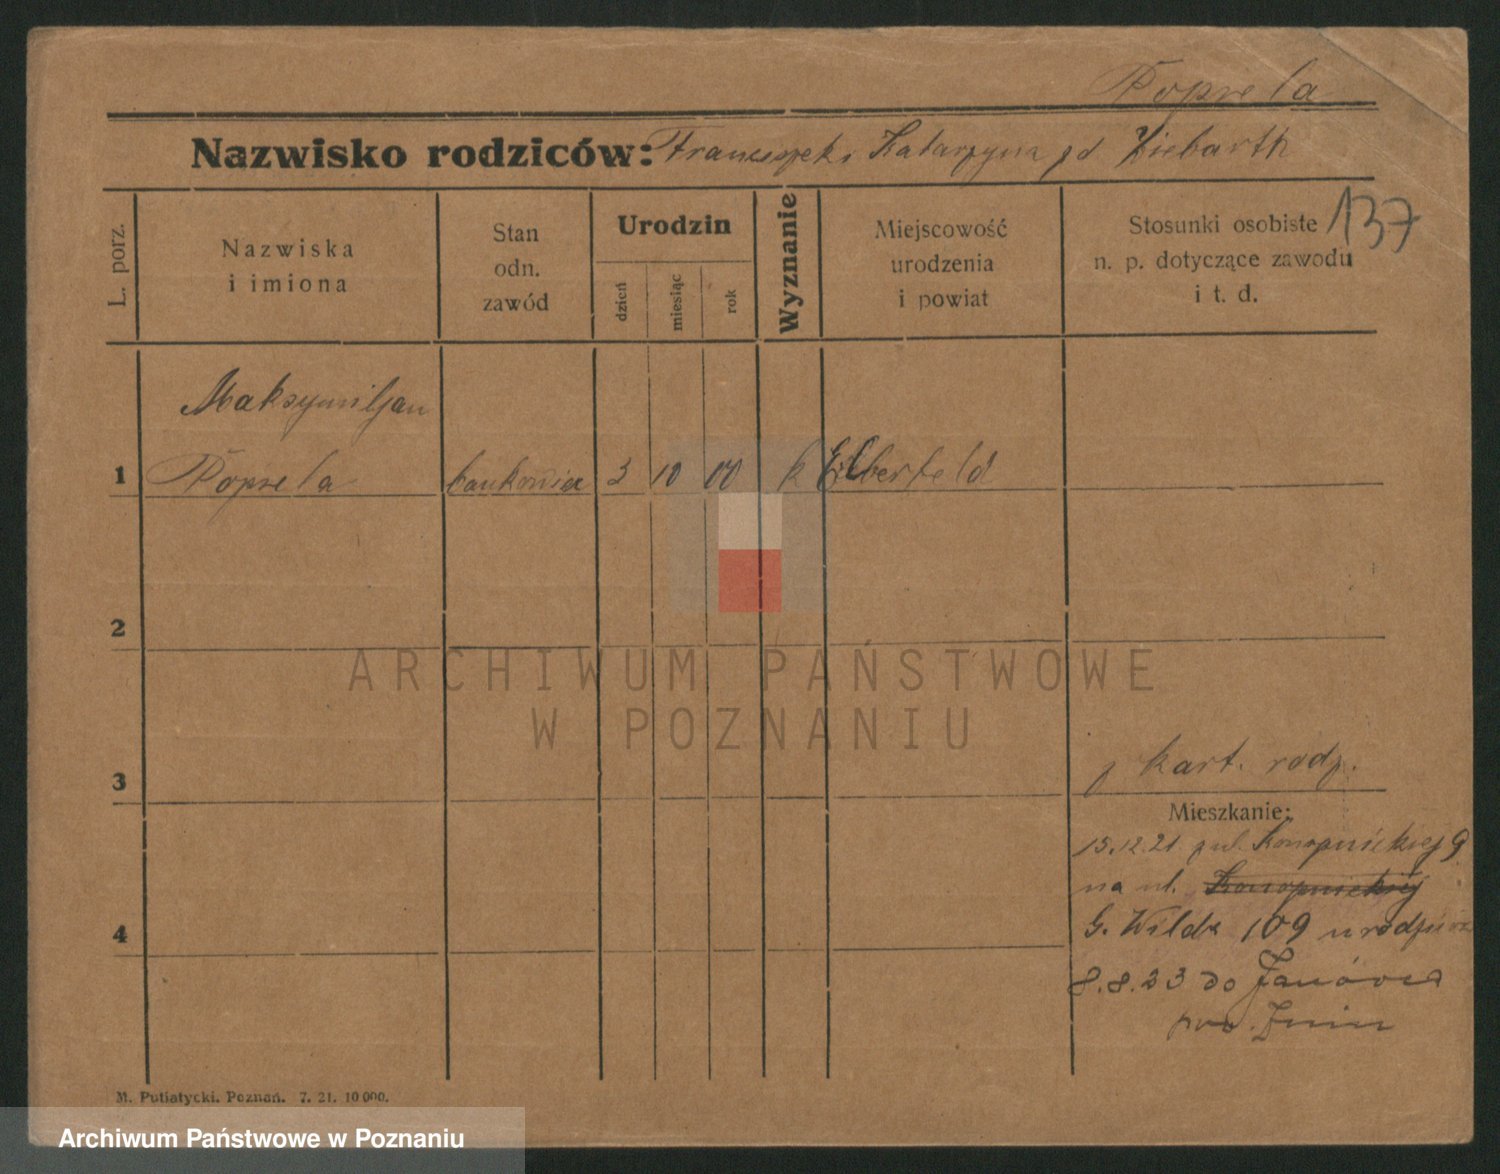 Popsela
Nazwisko rodziców: Franciszek i Katarzyna zd Ziebarth
137
L. porz.
Nazwiska
i imiona
Stan
odn.
zawód
Urodzin
dzień
miesiąc
rok
Wyznanie
Miejscowość
urodzenia
i powiat
Stosunki osobiste
n. p. dotyczące zawodu
i t. d.
Maksymiljan
1 Popsela bankowiec 3 10 00 k Elberfeld
2
3
z kart. rodz.
Mieszkanie:
15.12.21 z ul. Konopnickiej 9
na ul. Konopnickiej
4
G. Wilda 109 u rodziców
8.8.23 do Janówca
pow. Żnin
M. Putiatycki. Poznań. 7. 21. 10 000.
ARCHIWUM PAŃSTWOWE
W POZNANIU
Archiwum Państwowe w Poznaniu